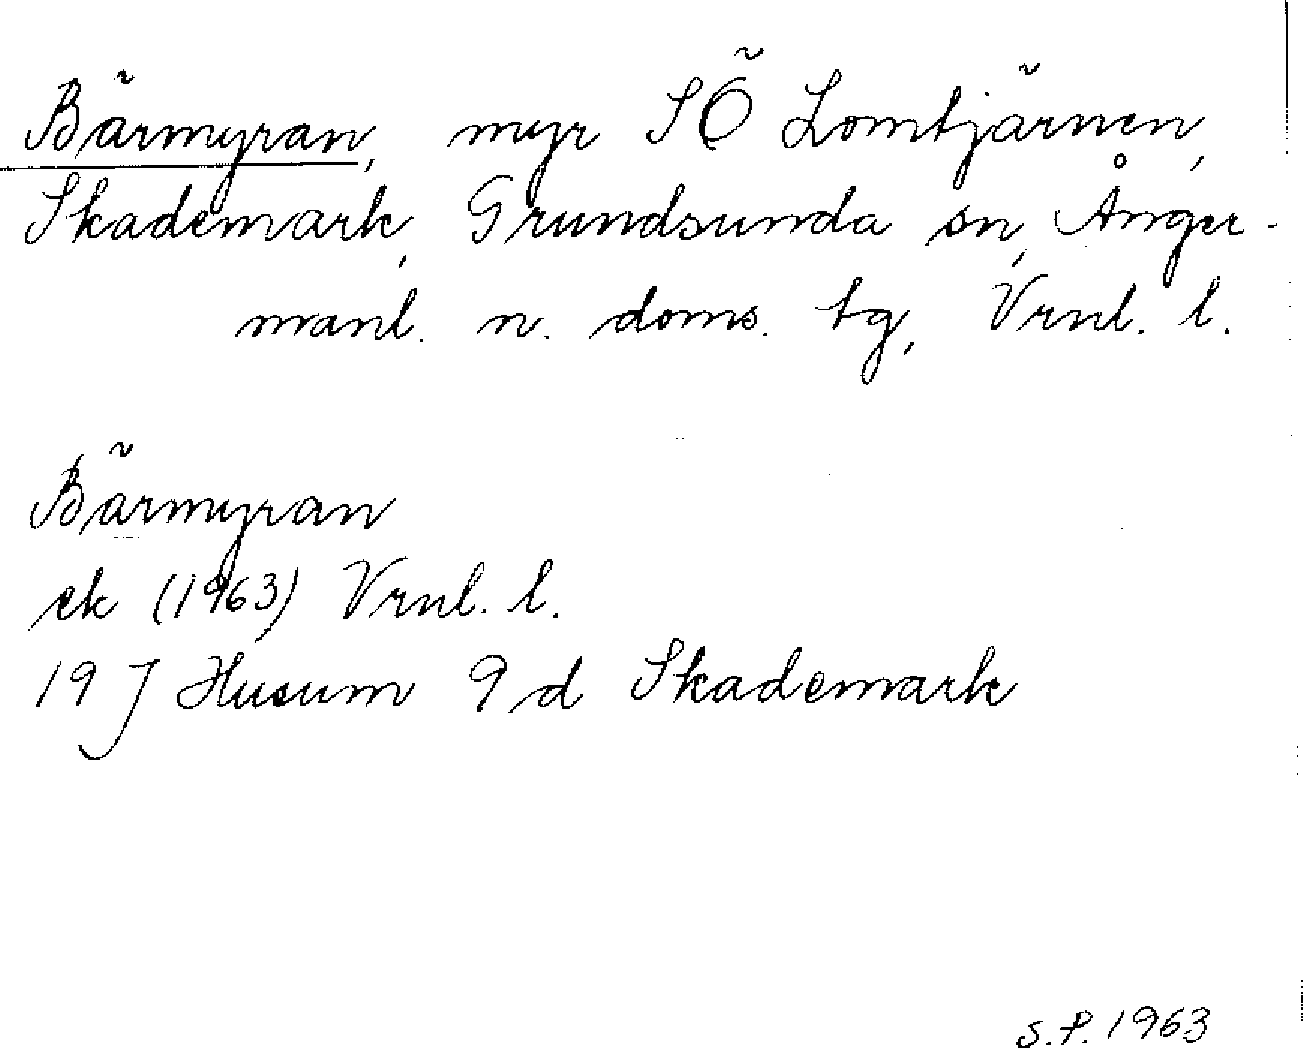 Bärmyran, myr SÖ Lomtjärnen,
Skademark, Grundsunda sn, Ånger-
manl. n. doms. tg, Vrnl. l.
Bärmyran
ek (1963) Vrnl. l.
19 J Husum 9 d Skademark
S.P. 1963